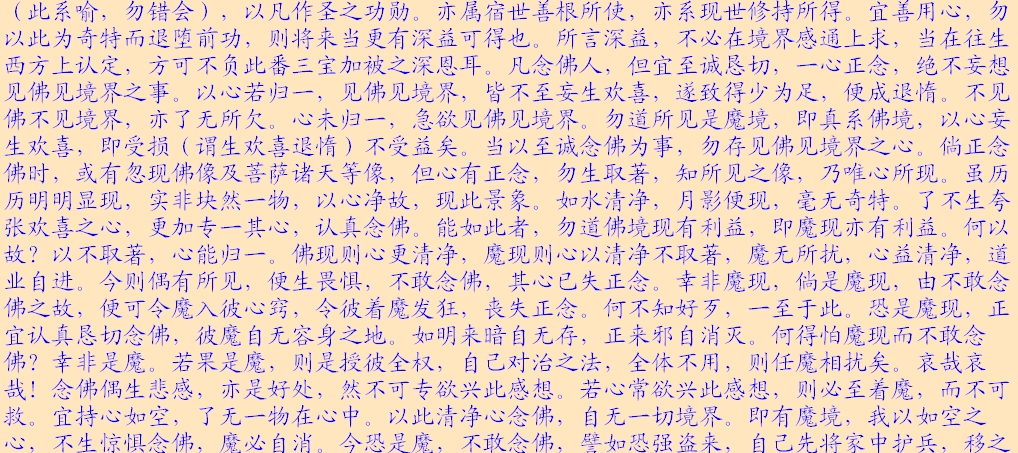 （此系喻，勿错会），以凡作圣之功勋。亦属宿世善根所使，亦系现世修持所得。宜善用心，勿
以此为奇特而退堕前功，则将来当更有深益可得也。所言深益，不必在境界感通上求，当在往生
西方上认定，方可不负此番三宝加被之深恩耳。凡念佛人，但宜至诚恳切，一心正念，绝不妄想
见佛见境界之事。以心若归一，见佛见境界，皆不至妄生欢喜，遂致得少为足，便成退惰。不见
佛不见境界，亦了无所欠。心未归一，急欲见佛见境界。勿道所见是魔境，即真系佛境，以心妄
生欢喜，即受损（谓生欢喜退惰）不受益矣。当以至诚念佛为事，勿存见佛见境界之心。倘正念
佛时，或有忽现佛像及菩萨诸天等像，但心有正念，勿生取著，知所见之像，乃唯心所现。虽历
历明明显现，实非块然一物，以心净故，现此景象。如水清净，月影便现，毫无奇特。了不生夸
张欢喜之心，更加专一其心，认真念佛。能如此者，勿道佛境现有利益，即魔现亦有利益。何以
故？以不取著，心能归一。佛现则心更清净，魔现则心以清净不取著，魔无所扰，心益清净，道
业自进。今则偶有所见，便生畏惧，不敢念佛，其心已失正念。幸非魔现，倘是魔现，由不敢念
佛之故，便可令魔入彼心窍，令彼着魔发狂，丧失正念。何不知好歹，一至于此。恐是魔现，正
宜认真恳切念佛，彼魔自无容身之地。如明来暗自无存，正来邪自消灭。何得怕魔现而不敢念
佛？幸非是魔。若果是魔，则是授彼全权，自己对治之法，全体不用，则任魔相扰矣。哀哉哀
哉！念佛偶生悲感，亦是好处，然不可专欲兴此感想。若心常欲兴此感想，则必至着魔，而不可
救。宜持心如空，了无一物在心中。以此清净心念佛，自无一切境界。即有魔境，我以如空之
心，不生惊惧念佛，魔必自消。今恐是魔，不敢念佛，譬如恐强盗来，自己先将家中护兵，移之